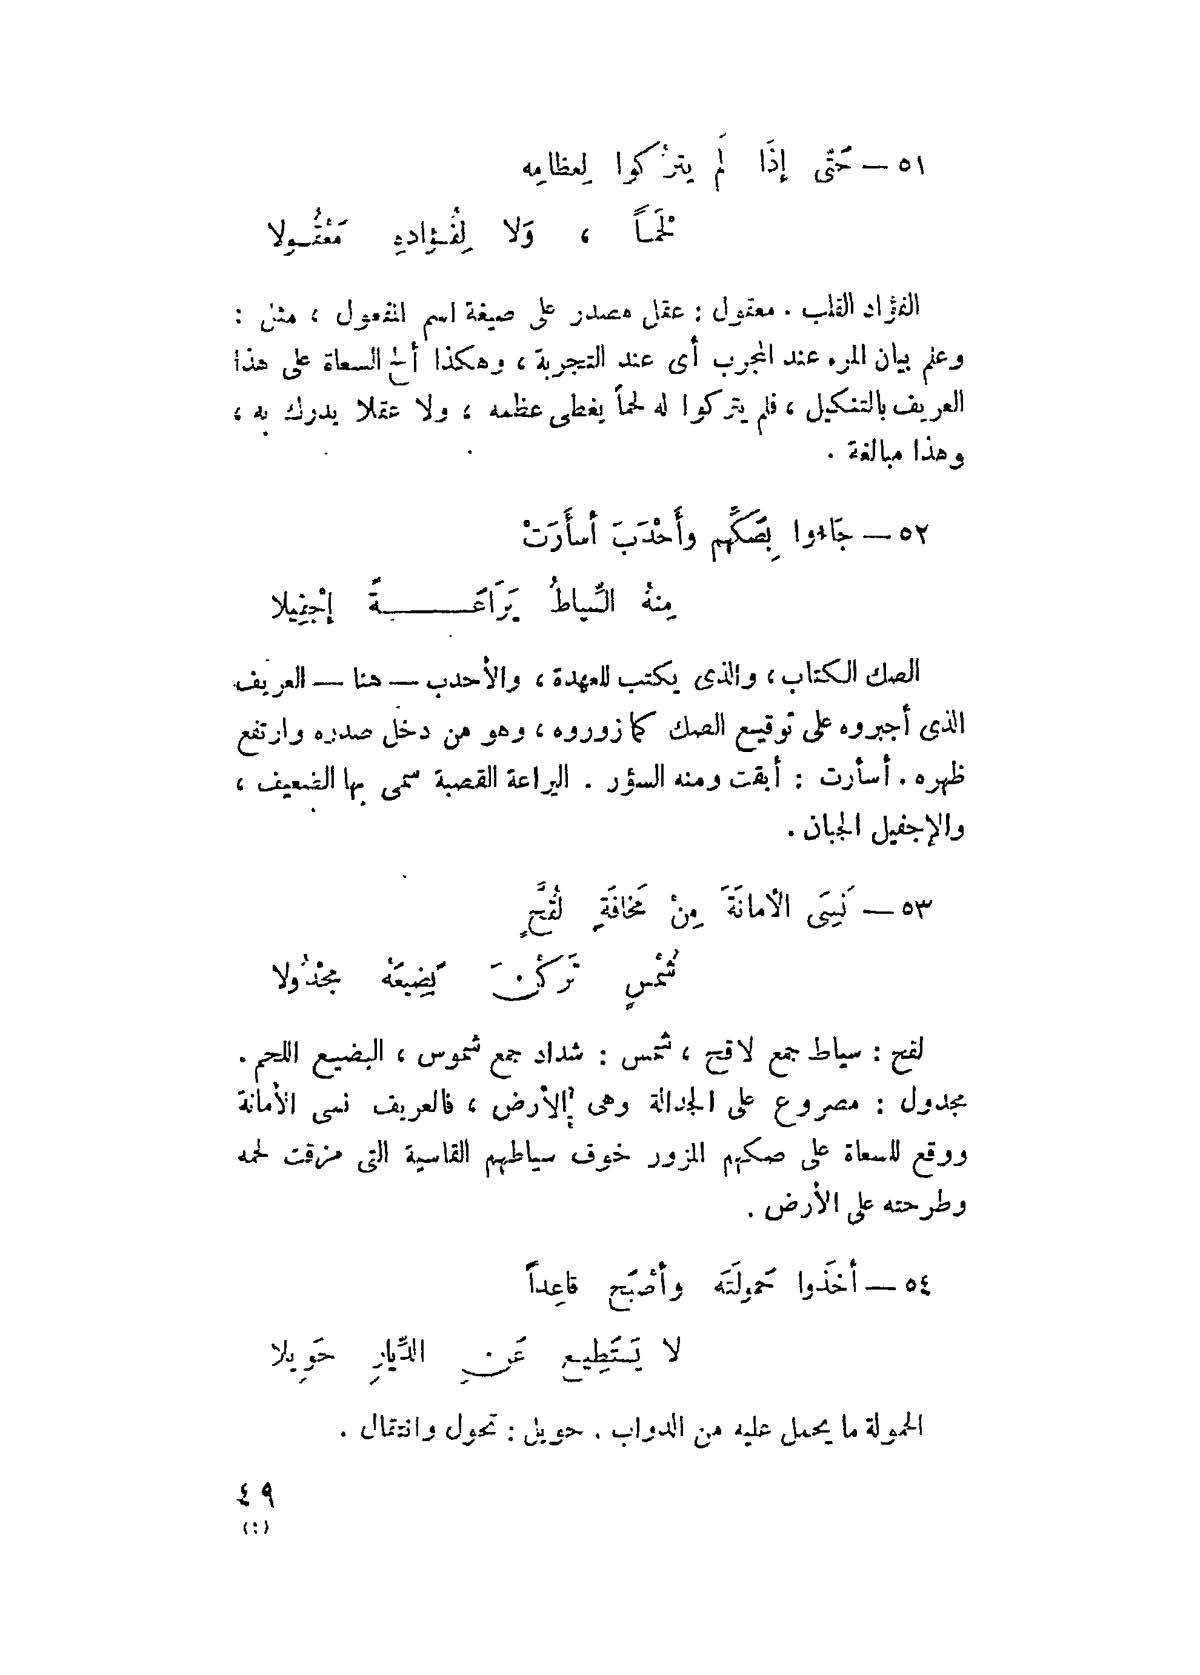 ٥١ — حَتّى إذَا لَم يترُكوا لِعظامِه
لَحْمـاً ، وَلا لِفُـؤادهِ مَعْقُـولا
الفؤاد القلب . معقول : عقل مصدر على صيغة اسم المفعول ، مثل :
وعلم بيان المرء عند المجرب أى عند التجربة ، وهكذا ألح السعاة على هذا
العريف بالتنكيل ، فلم يتركوا له لحماً يغطى عظمه ، ولا عقلا يدرك به ،
وهذا مبالغة .
٥٢ — جَاءوا بِصَكِّهم وأَحْدَبَ أسأَرَتْ
مِنهُ السِّياطُ يَرَاعَــــــةً إجْفِيلا
الصك الكتاب ، والذى يكتب للعهدة ، والأحدب — هنا — العريف
الذى أجبروه على توقيع الصك كما زوروه ، وهو من دخل صدره وارتفع
ظهره . أسأرت : أبقت ومنه السؤر . اليراعة القصبة سمى بها الضعيف ،
والإجفيل الجبان .
٥٣ — نَسِىَ الأمانَةَ مِنْ مَخافَةِ لُقَّحٍ
شُمْسٍ تَرَكْنَ بَضِيعَهُ مجْدُولا
لقح : سياط جمع لاقح ، شُمس : شداد جمع شموس ، البضيع اللحم .
مجدول : مصروع على الجدالة وهى الأرض ، فالعريف نسى الأمانة
ووقع للسعاة على صكهم المزور خوف سياطهم القاسية التى مزقت لحمه
وطرحته على الأرض .
٥٤ — أخَذوا حَمولَتَه وأصْبَح قاعِداً
لا يَسْتَطِيع عَنِ الدِّيارِ حَوِيلا
الحمولة ما يحمل عليه من الدواب . حويل : تحول وانتقال .
٤٩
(٤)